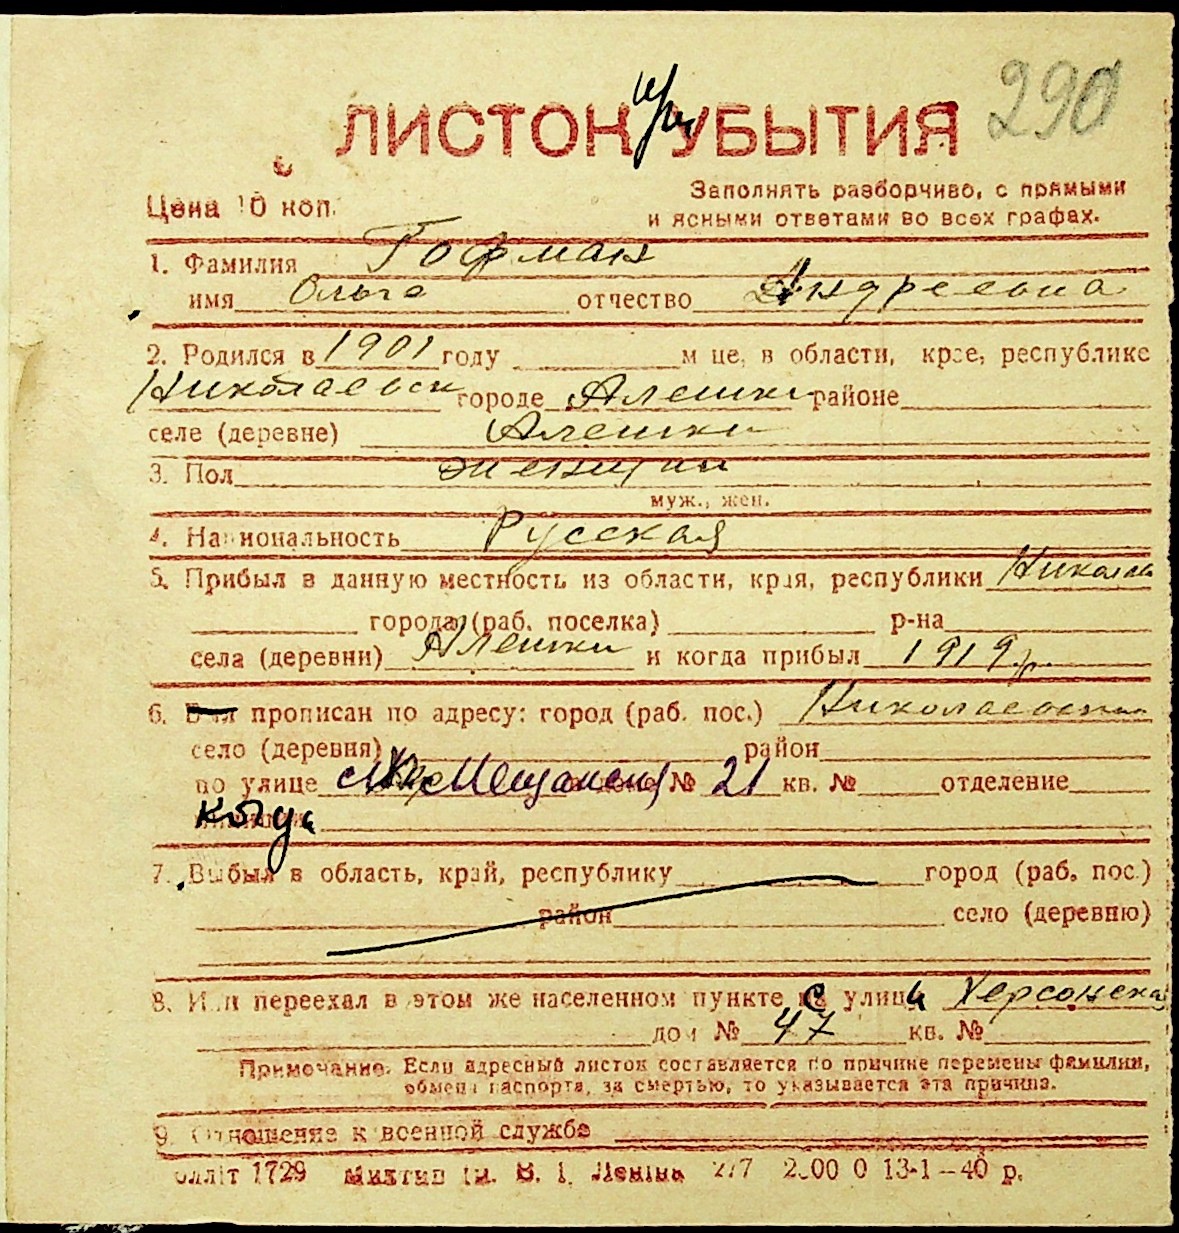 290
ЛИСТОК УБЫТИЯ
Цена 10 коп.
Заполнять разборчиво, с прямыми
и ясными ответами во всех графах.
1. Фамилия Гофман
имя Ольга отчество Андреевна
2. Родился в 1901 году м це, в области, крае, республике
Николаевск городе Алешки районе
селе (деревне) Алешки
3. Пол женщина
муж., жен.
4. Национальность Русская
5. Прибыл в данную местность из области, края, республики Николаев
города (раб. поселка) р-на
села (деревни) Алешки и когда прибыл 1919 г.
6. прописан по адресу: город (раб. пос.)
село (деревня) район
по улице Мещанская № 21 кв. № отделение
7. Выбыл в область, край, республику город (раб. пос.)
район село (деревню)
8. Или переехал в этом же населенном пункте с улицы Херсонская
дом № 47 кв. №
Примечание. Если адресный листок составляется по причине перемены фамилии,
обмена паспорта, за смертью, то указывается эта причина.
9. Отношение к военной службе
Оллiт 1729 В. І. Ленiна 277 13-1-40 р.